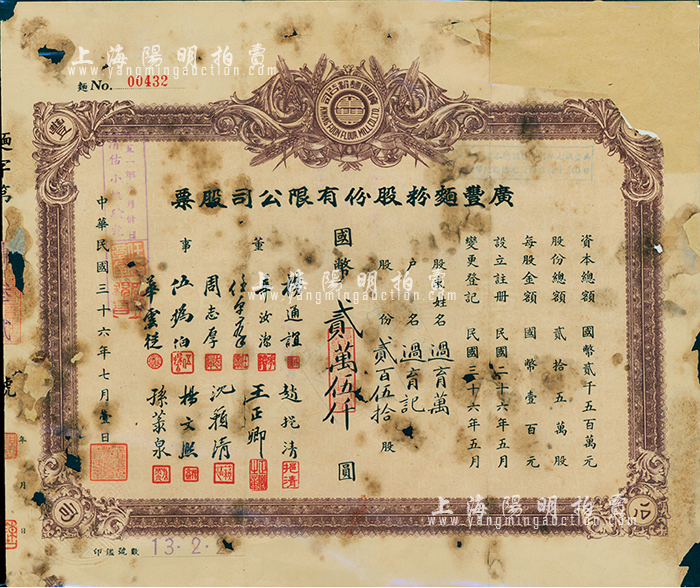 上海陽明拍賣
www.yangmingauction.com
麵 No. 00432
廣豐麵粉股份有限公司
KWANG FOUN FLOUR MILL CO. LTD
豐
廣豐麵粉股份有限公司股票
資本總額 國幣貳千五百萬元
股份總額 貳拾五萬股
每股金額 國幣壹百元
設立註册 民國二十六年五月
變更登記 民國三十六年五月
股東姓名 過育萬
户名 過育記
股份 貳百伍拾 股
國幣 貳萬伍仟 圓
董事
楊通誼
吳汝濬
周志厚
華雲從
趙挹清
王正卿
沈籟清
楊文熙
孫蓁泉
中華民國三十六年七月壹日
麵字第
號
年 月 日
上海陽明拍賣
www.yangmingauction.com
司
公
印鑑號數
13·2·